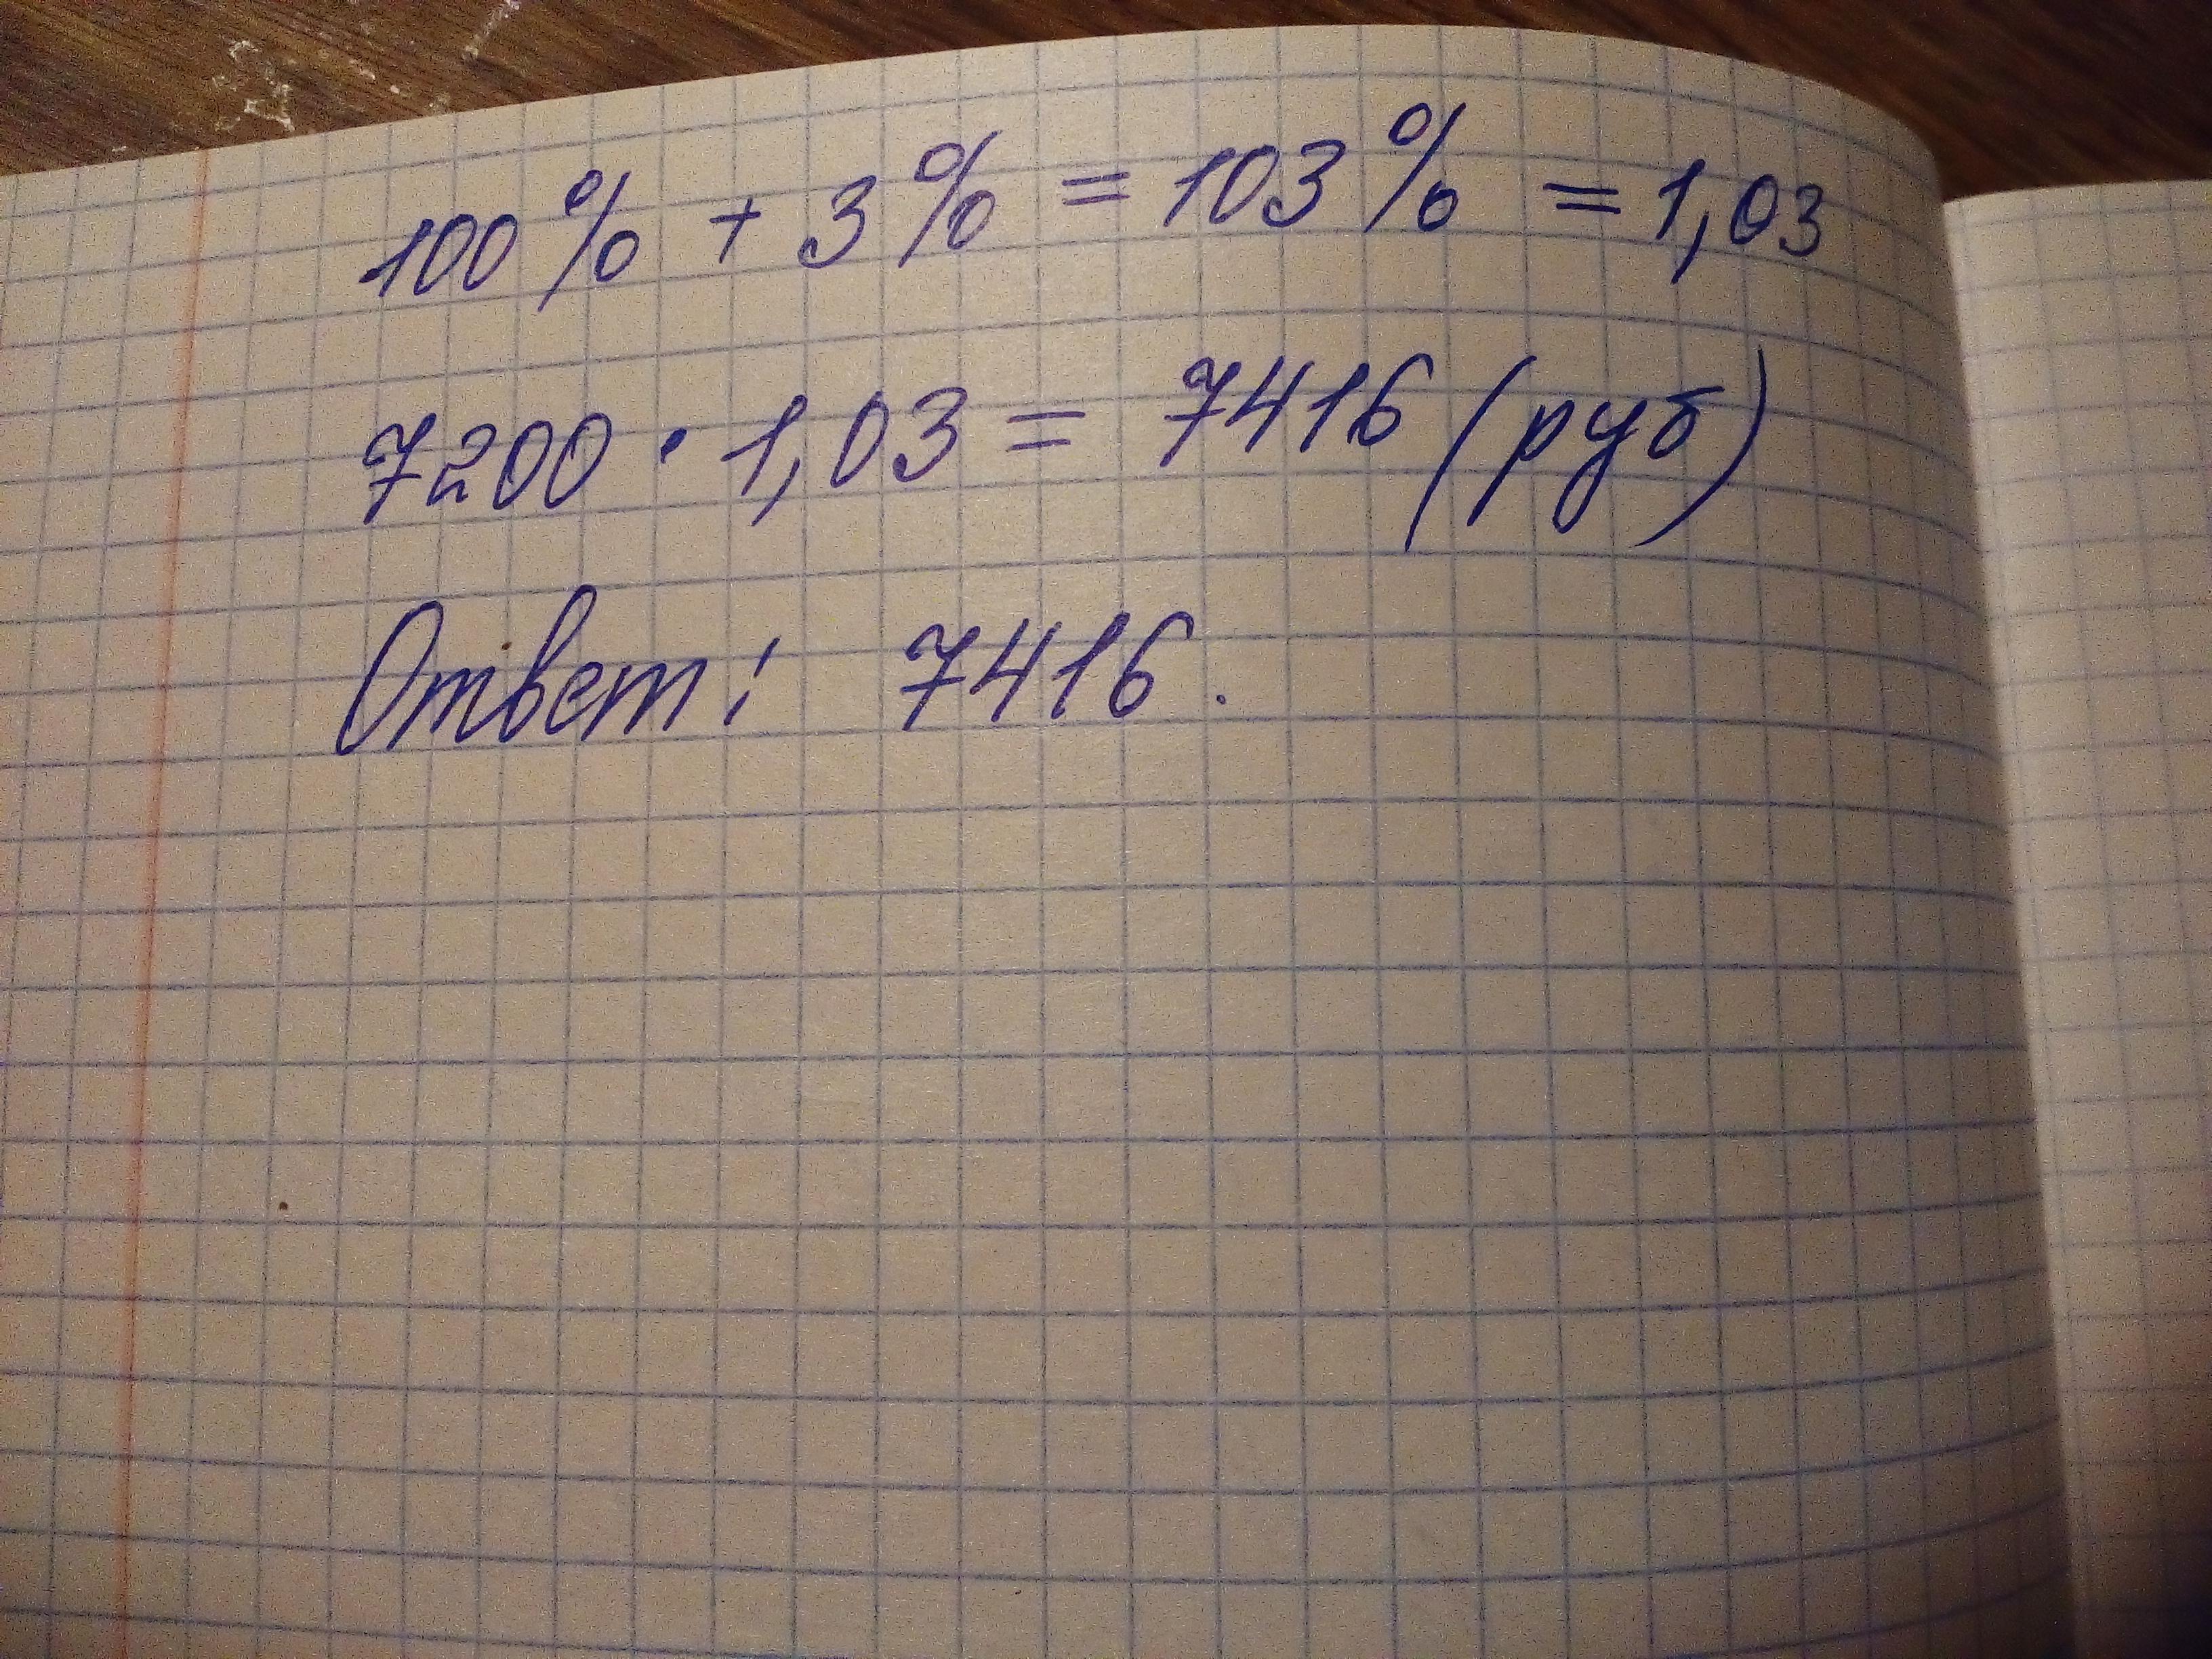 100% + 3% = 103% = 1,03
7200 · 1,03 = 7416 (руб)
Ответ: 7416.